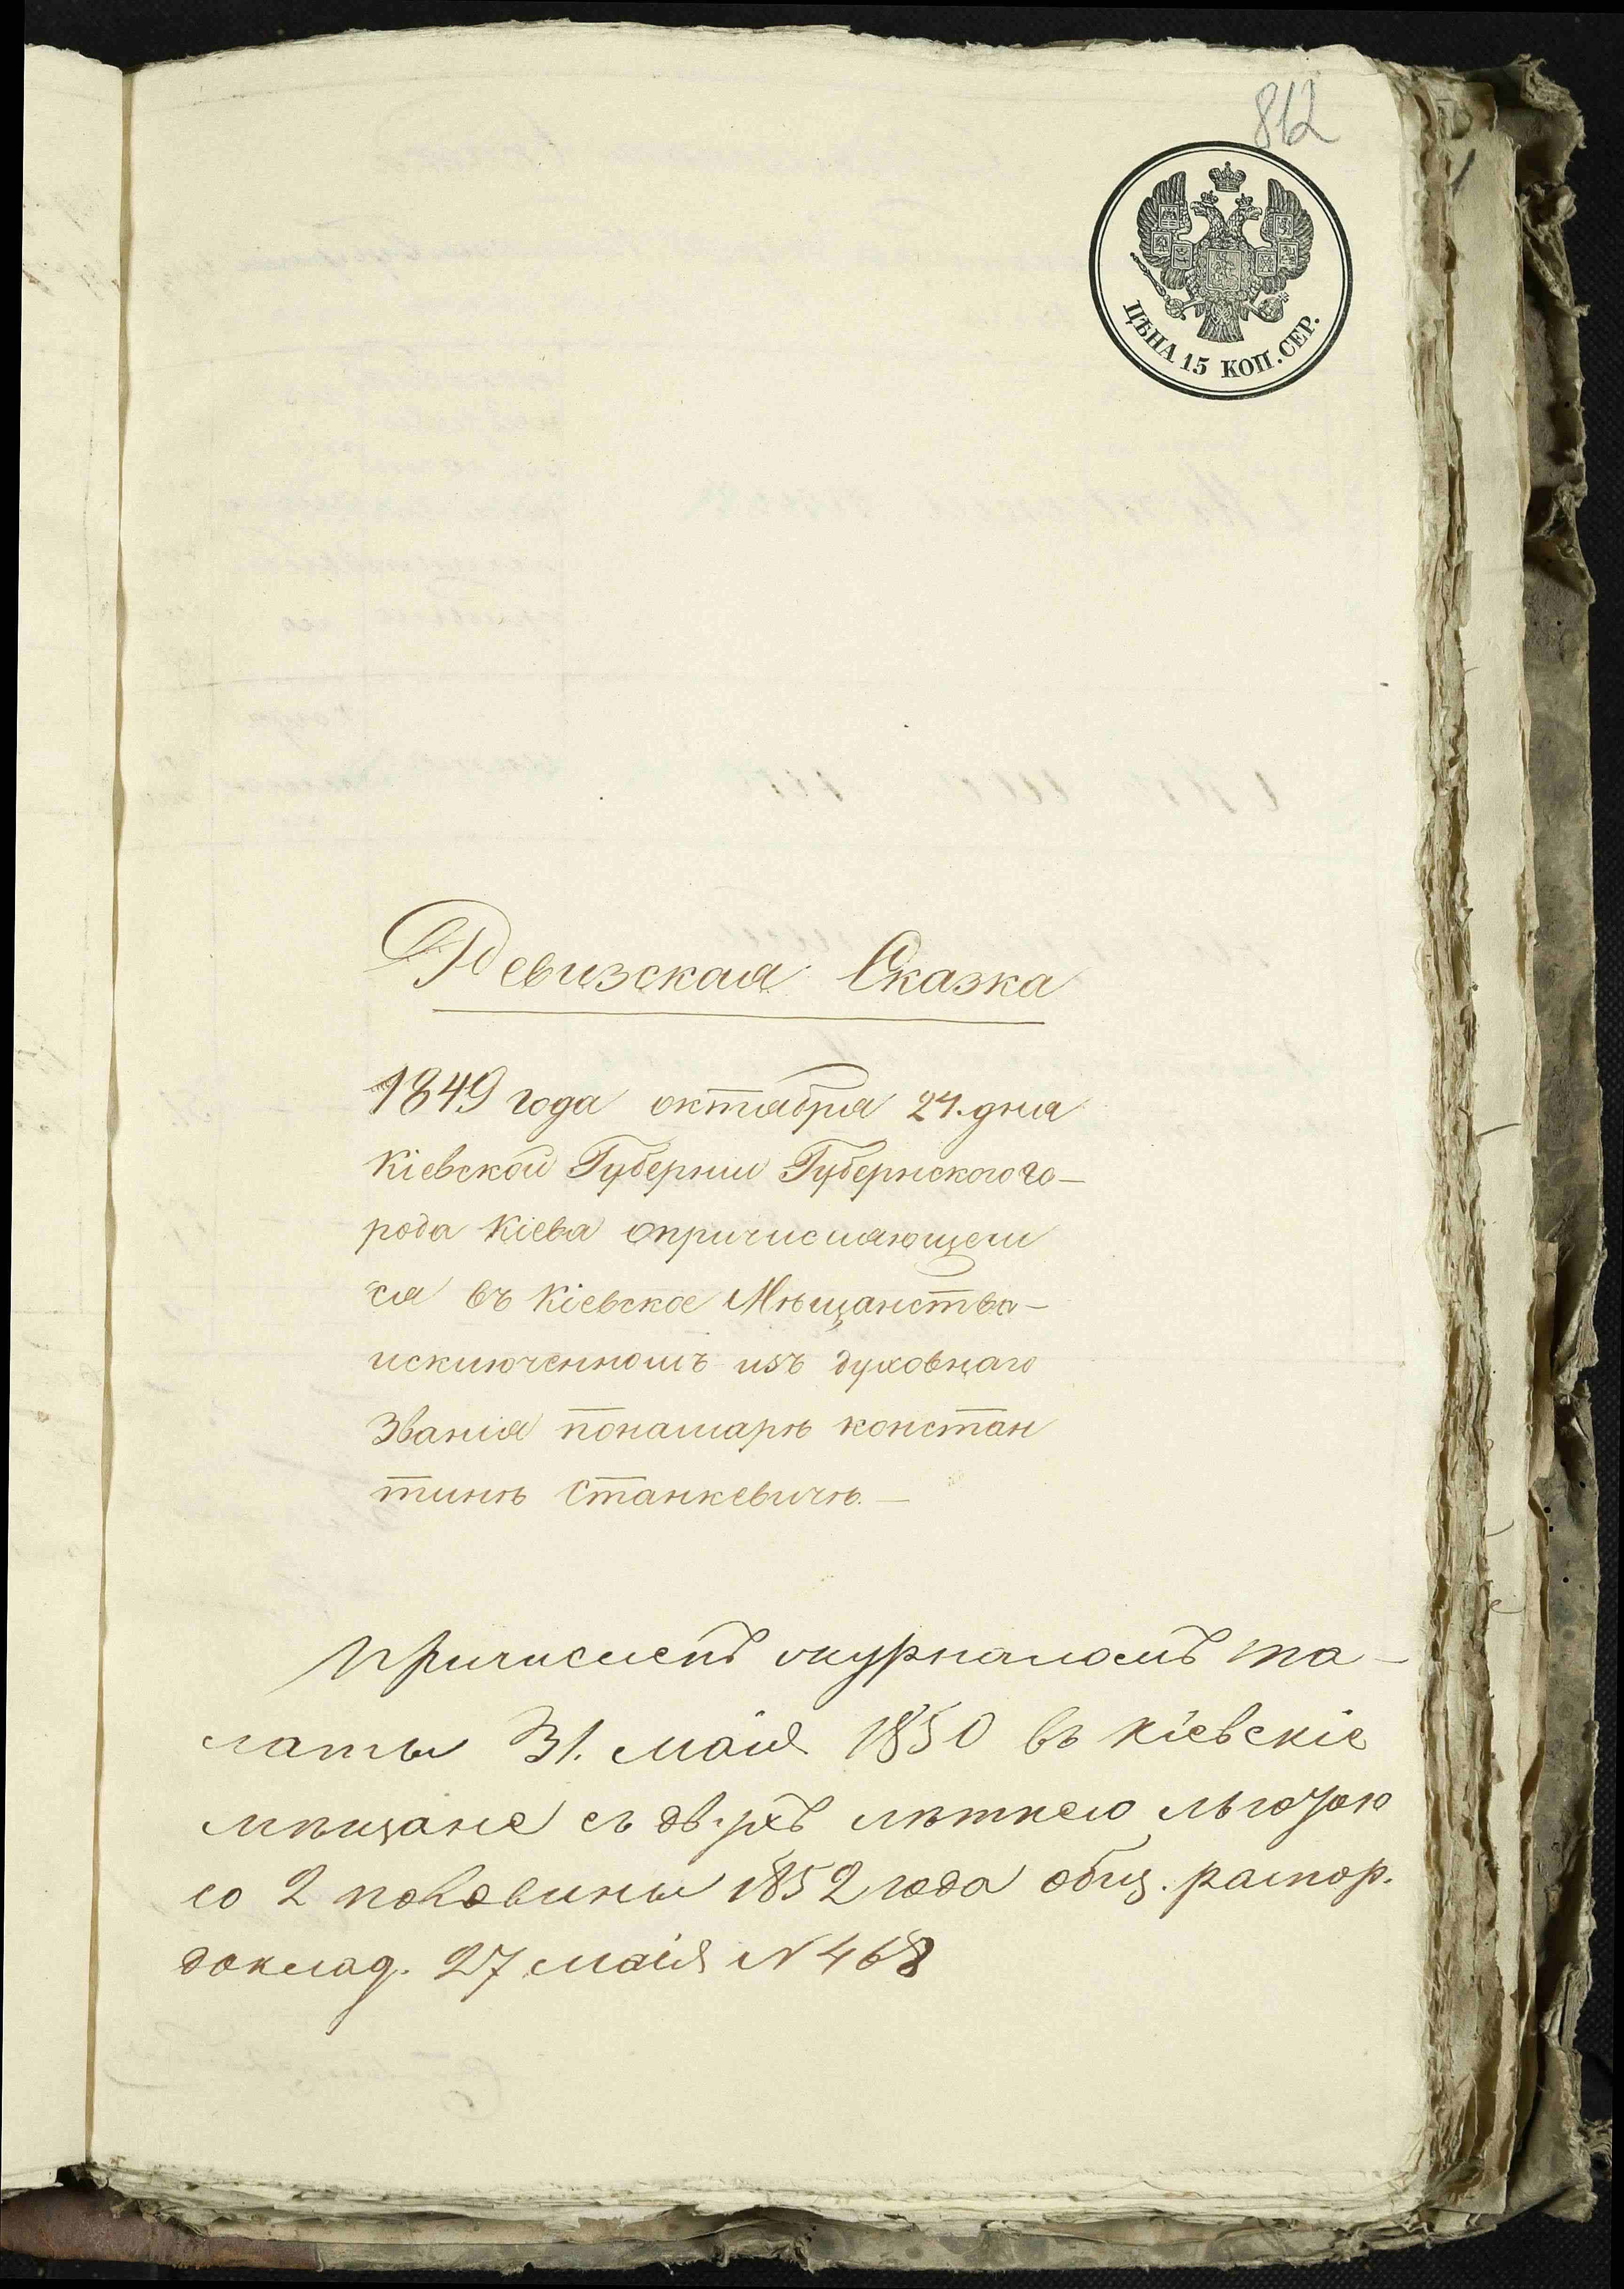 812
ЦѢНА 15 КОП. СЕР.
Ревизская Сказка
1849 года октября 24. дня
Кіевской Губерніи Губернского го-
рода Кіева опричисляющем
ся въ Кіевское Мѣщанство-
исключенномъ изъ духовнаго
Званія понамарѣ констан
тинѣ Станкевичѣ.-
Причисленъ журналомъ па-
латы 31. маія 1850 въ кіевскіе
мѣщане съ лѣтнею льготою
со 2 половины 1852 года общ. распор.
доклад. 27 маія N 468